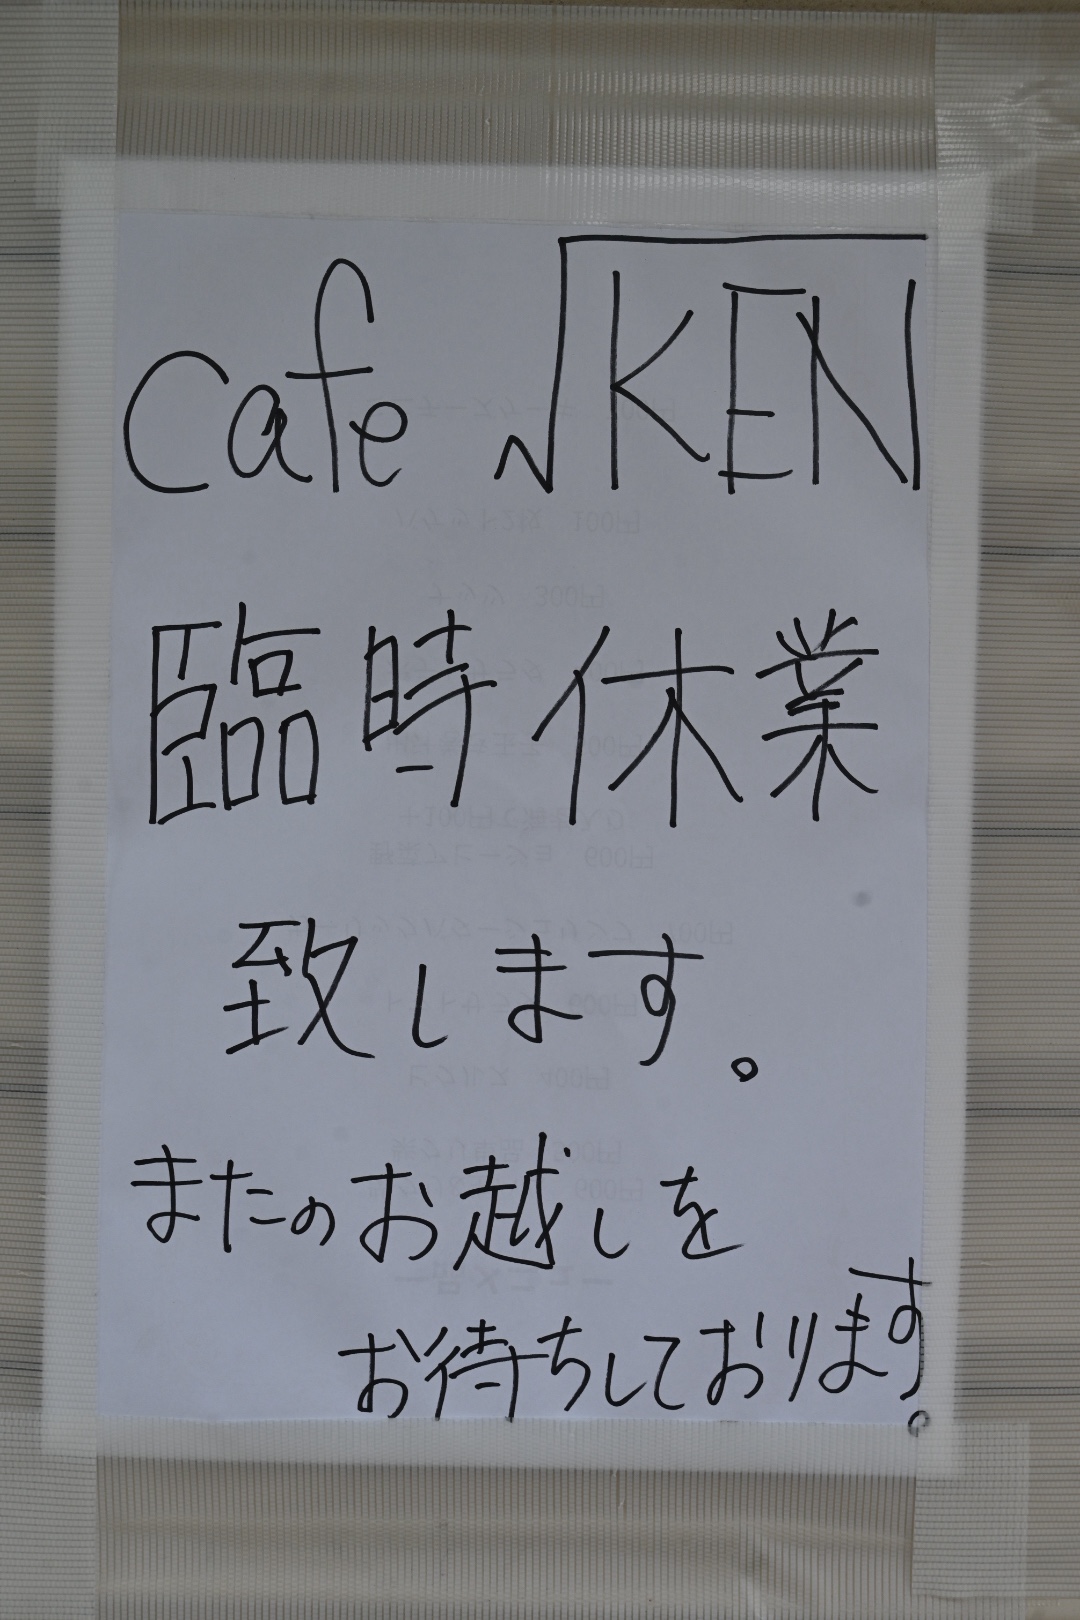 Cafe √KEN
臨時休業
致します。
またのお越しを
お待ちしております。